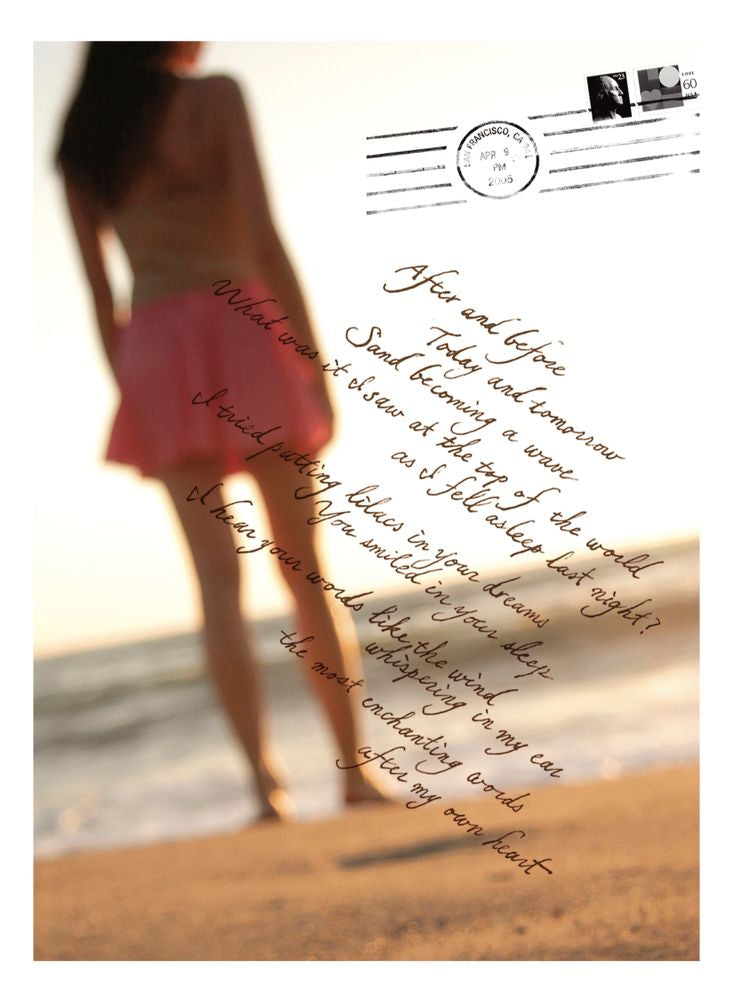 USA 23
LOVE
60
USA
SAN FRANCISCO, CA
APR 9
PM
2005
After and before
Today and tomorrow
Sand becoming a wave
What was it I saw at the top of the world
as I fell asleep last night?
I tried putting lilacs in your dreams
You smiled in your sleep
I hear your words like the wind
whispering in my ear
the most enchanting words
after my own heart